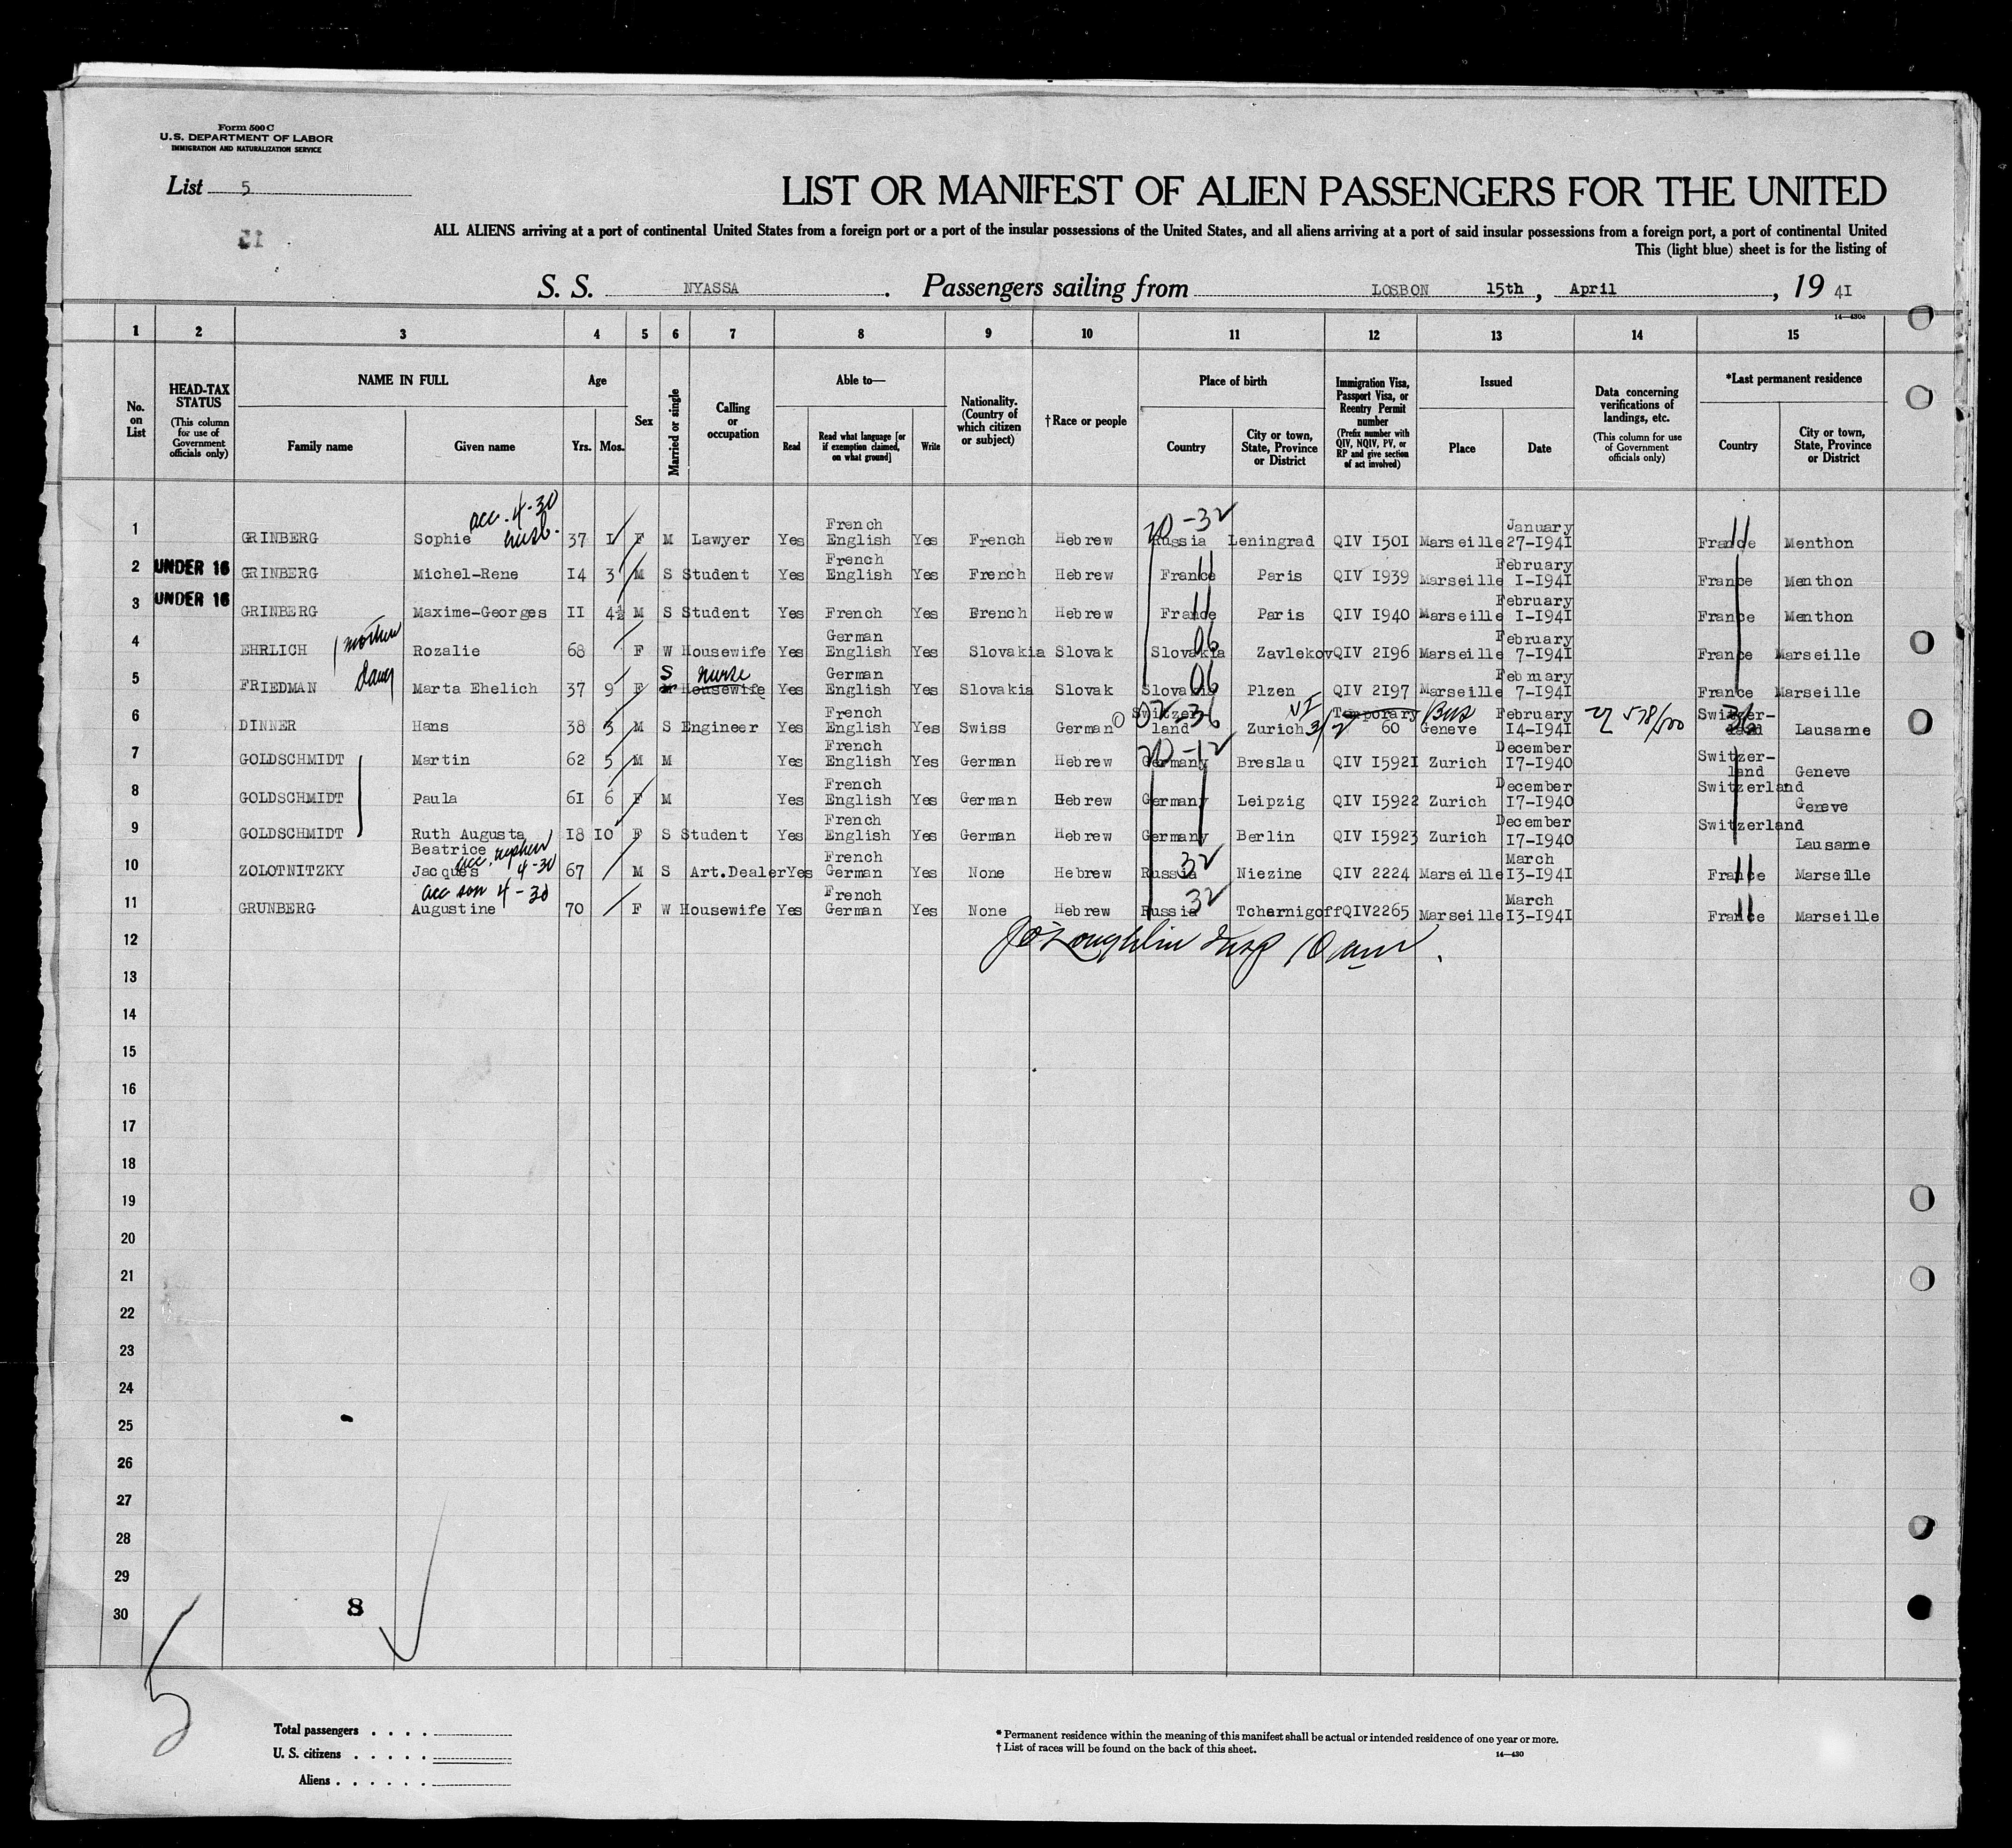 Form 500 C
U.S. DEPARTMENT OF LABOR
IMMIGRATION AND NATURALIZATION SERVICE
List 5
LIST OR MANIFEST OF ALIEN PASSENGERS FOR THE UNITED
ALL ALIENS arriving at a port of continental United States from a foreign port or a port of the insular possessions of the United States, and all aliens arriving at a port of said insular possessions from a foreign port, a port of continental United
This (light blue) sheet is for the listing of
S. S. NYASSA. Passengers sailing from LOSBON 15th, April, 19 41
14—430c
1 2 3 4 5 6 7 8 9 10 11 12 13 14 15
No. on List
HEAD-TAX STATUS (This column for use of Government officials only)
NAME IN FULL
Family name Given name
Age
Yrs. Mos.
Sex
Married or single
Calling or occupation
Able to—
Read Read what language [or if exemption claimed, on what ground] Write
Nationality. (Country of which citizen or subject)
†Race or people
Place of birth
Country City or town, State, Province or District
Immigration Visa, Passport Visa, or Reentry Permit number (Prefix number with QIV, NQIV, PV, or RP and give section of act involved)
Issued
Place Date
Data concerning verifications of landings, etc. (This column for use of Government officials only)
*Last permanent residence
Country City or town, State, Province or District
acc. 4-30
husb.
1 GRINBERG Sophie 37 I F M Lawyer Yes French English Yes French Hebrew 20-32 Russia Leningrad QIV I50I Marseille January 27-I94I France 11 Menthon
2 UNDER 16 GRINBERG Michel-Rene I4 3 M S Student Yes French English Yes French Hebrew France 11 Paris QIV I939 Marseille February I-I94I France Menthon
3 UNDER 16 GRINBERG Maxime-Georges II 4½ M S Student Yes French Yes French Hebrew France 11 Paris QIV I940 Marseille February I-I94I France Menthon
4 EHRLICH mother Rozalie 68 F W Housewife Yes German English Yes Slovakia Slovak Slovakia 06 Zavlekov QIV 2I96 Marseille February 7-I94I France Marseille
5 FRIEDMAN daug Marta Ehelich 37 9 F M S Housewife nurse Yes German English Yes Slovakia Slovak Slovakia 06 Plzen QIV 2I97 Marseille February 7-I94I France Marseille
6 DINNER Hans 38 3 M S Engineer Yes French English Yes Swiss German Switzer-land 02-36 Zurich VI 3/2 Temporary 60 Bus Geneve February I4-I94I Switzer-land 36 Lausanne
7 GOLDSCHMIDT Martin 62 5 M M Yes French English Yes German Hebrew 20-12 Germany Breslau QIV I592I Zurich December I7-I940 Switzer-land Geneve
8 GOLDSCHMIDT Paula 6I 6 F M Yes French English Yes German Hebrew Germany Leipzig QIV I5922 Zurich December I7-I940 Switzerland Geneve
9 GOLDSCHMIDT Ruth Augusta Beatrice I8 I0 F S Student Yes French English Yes German Hebrew Germany Berlin QIV I5923 Zurich December I7-I940 Switzerland Lausanne
acc. nephew 4-30
10 ZOLOTNITZKY Jacques 67 M S Art.Dealer Yes French German Yes None Hebrew Russia 32 Niezine QIV 2224 Marseille March I3-I94I France 11 Marseille
acc son 4-30
11 GRUNBERG Augustine 70 F W Housewife Yes French German Yes None Hebrew Russia 32 Tchernigoff QIV2265 Marseille March I3-I94I France 11 Marseille
12 O'Loughlin Insp 10 am.
13
14
15
16
17
18
19
20
21
22
23
24
25
26
27
28
29
30
8
5
Total passengers . . . .
U. S. citizens . . . . .
Aliens . . . . . .
* Permanent residence within the meaning of this manifest shall be actual or intended residence of one year or more.
† List of races will be found on the back of this sheet.
14—430